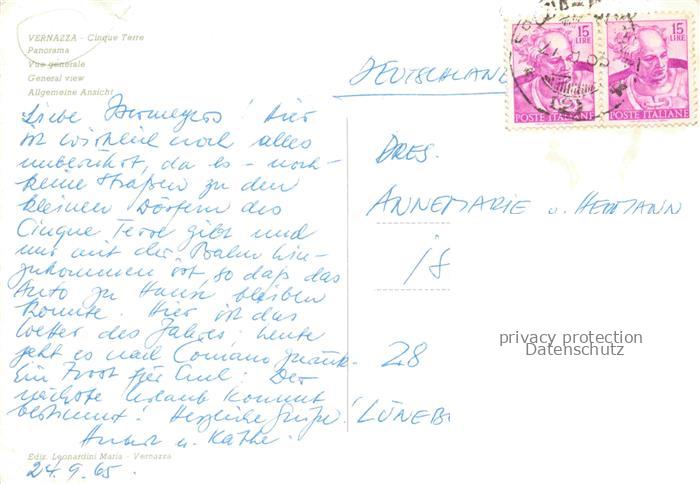 VERNAZZA - Cinque Terre
Panorama
Vue générale
General view
Allgemeine Ansicht
15 LIRE
15 LIRE
POSTE ITALIANE
POSTE ITALIANE
DEUTSCHLAND
Liebe ! Hier
ist wirklich noch alles
unberührt, da es - noch -
keine Straßen zu den
kleinen Dörfern des
Cinque Terre gibt und
nur mit der Bahn hin-
zukommen ist, so daß das
Auto zu Haus bleiben
konnte. Hier ist das
Wetter des Jahres; heute
geht es nach Comano zurück.
Ein Trost für Euch: Der
nächste Urlaub kommt
bestimmt! Herzliche Grüße!
u. Käthe.
24.9.65.
DRES.
ANNEMARIE u. HERMANN
28
LÜNEB
privacy protection
Datenschutz
Ediz. Leonardini Maria - Vernazza